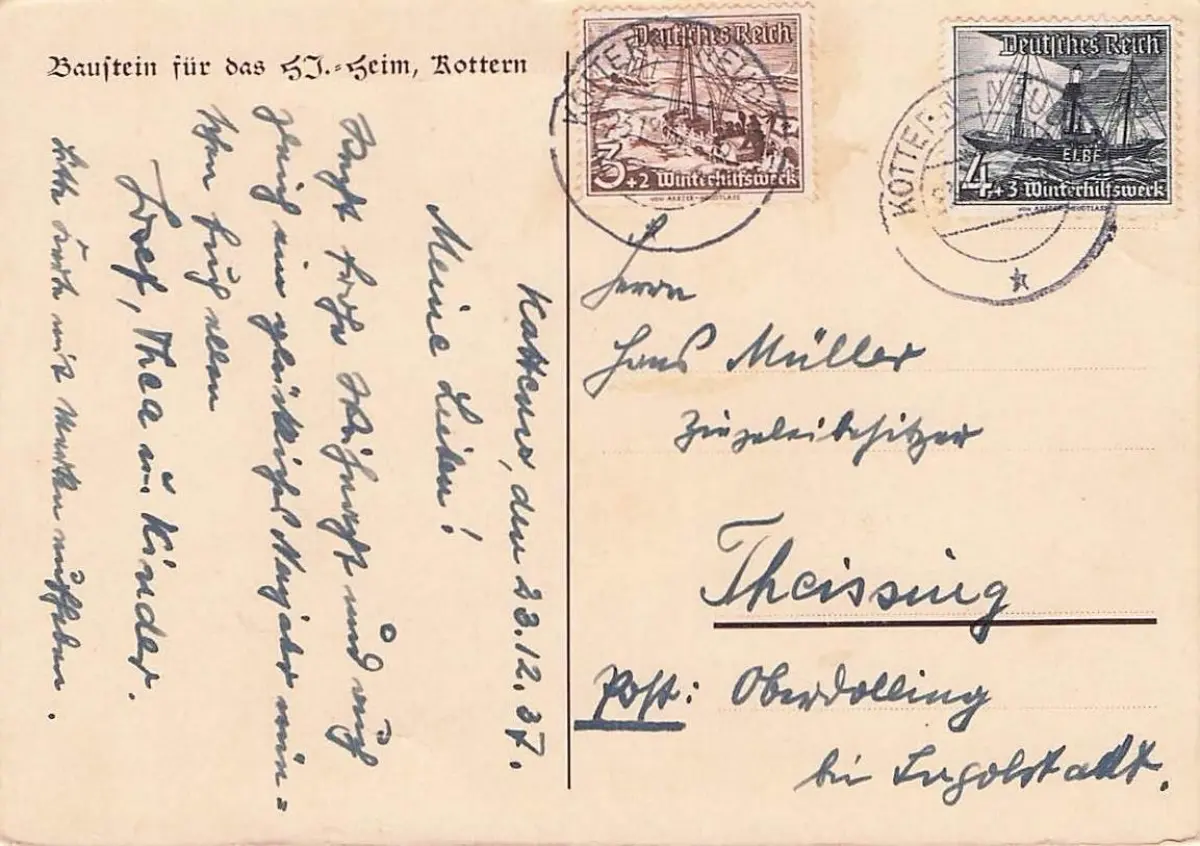 Baustein für das HJ.-Heim, Kottern
Kottern, den 23.12.37.
Meine Lieben!
Recht frohe Weihnacht und auch
gleich ein glückliches Neujahr wün=
schen Euch allen
Josef, Thea u. Kinder.
Bitte Karte mit Marken aufheben.
Deutsches Reich
3+2 Winterhilfswerk
VON AXSTER-HEUDTLASS
Deutsches Reich
ELBE
4+3 Winterhilfswerk
VON AXSTER-HEUDTLASS
KOTTERN
KOTTERN-NEU
Herrn
Hans Müller
Ziegeleibesitzer
Theissing
Post: Oberdolling
bei Ingolstadt.